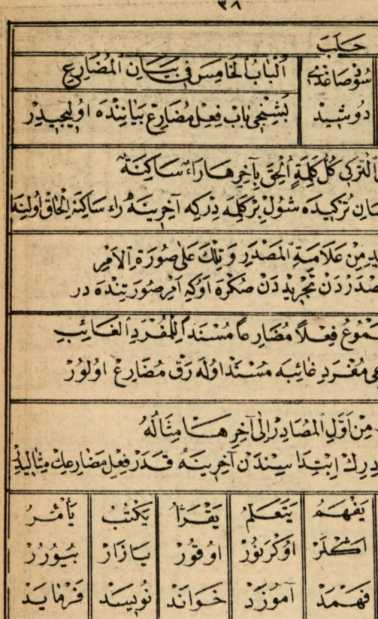 ٣٨
حَلَبَ
سُوتْ صَاغْدِى
دُوشِيدْ
اَلْبَابُ الْخَامِسُ فِى بَيَانِ الْمُضَارِعِ
بَشِنْجِى بَابْ فِعْلِ مُضَارِعْ بَيَانِنْدَه اُولِيجِيدِرْ
التُّرْكِى كُلُّ كَلِمَةٍ اُلْحِقَ بِآخِرِهَا رَاءٌ سَاكِنَةٌ
تُرْكِيدَه شُولْ بِرْ كَلِمَه دِرْكِه آخِرِينَه رَاءِ سَاكِنَه اِلْحَاقْ اُولِنَه
مِنْ عَلَامَةِ الْمَصْدَرِ وَ تِلْكَ عَلَى صُورَةِ الْاَمْرِ
تَجْرِيدْدَنْ صَكْرَه اُوكِه اَمِرْ صُورَتِنْدَه دِرْ
فِعْلًا مُضَارِعًا مُسْنَدًا لِلْمُفْرَدِ الْغَائِبِ
مُفْرَدِ غَائِبَه مُسْنَدْ اُولَه رَقْ مُضَارِعْ اُولُورْ
مِنْ اَوَّلِ الْمَصَادِرِ اِلَى آخِرِهَا مِثَالُهُ
اِبْتِدَا سِنْدَنْ آخِرِينَه قَدَرْ فِعْلِ مُضَارِعِكْ مِثَالِيدِرْ
يَفْهَمُ يَتَعَلَّمُ يَقْرَأُ يَكْتُبُ يَأْمُرُ
اَكْلَرْ اُوكْرَنُورْ اُوقُورْ يَازَارْ بُيُورُرْ
فَهْمَدْ آمُوزَدْ خَوَانَدْ نُويِسَدْ فَرْمَايَدْ